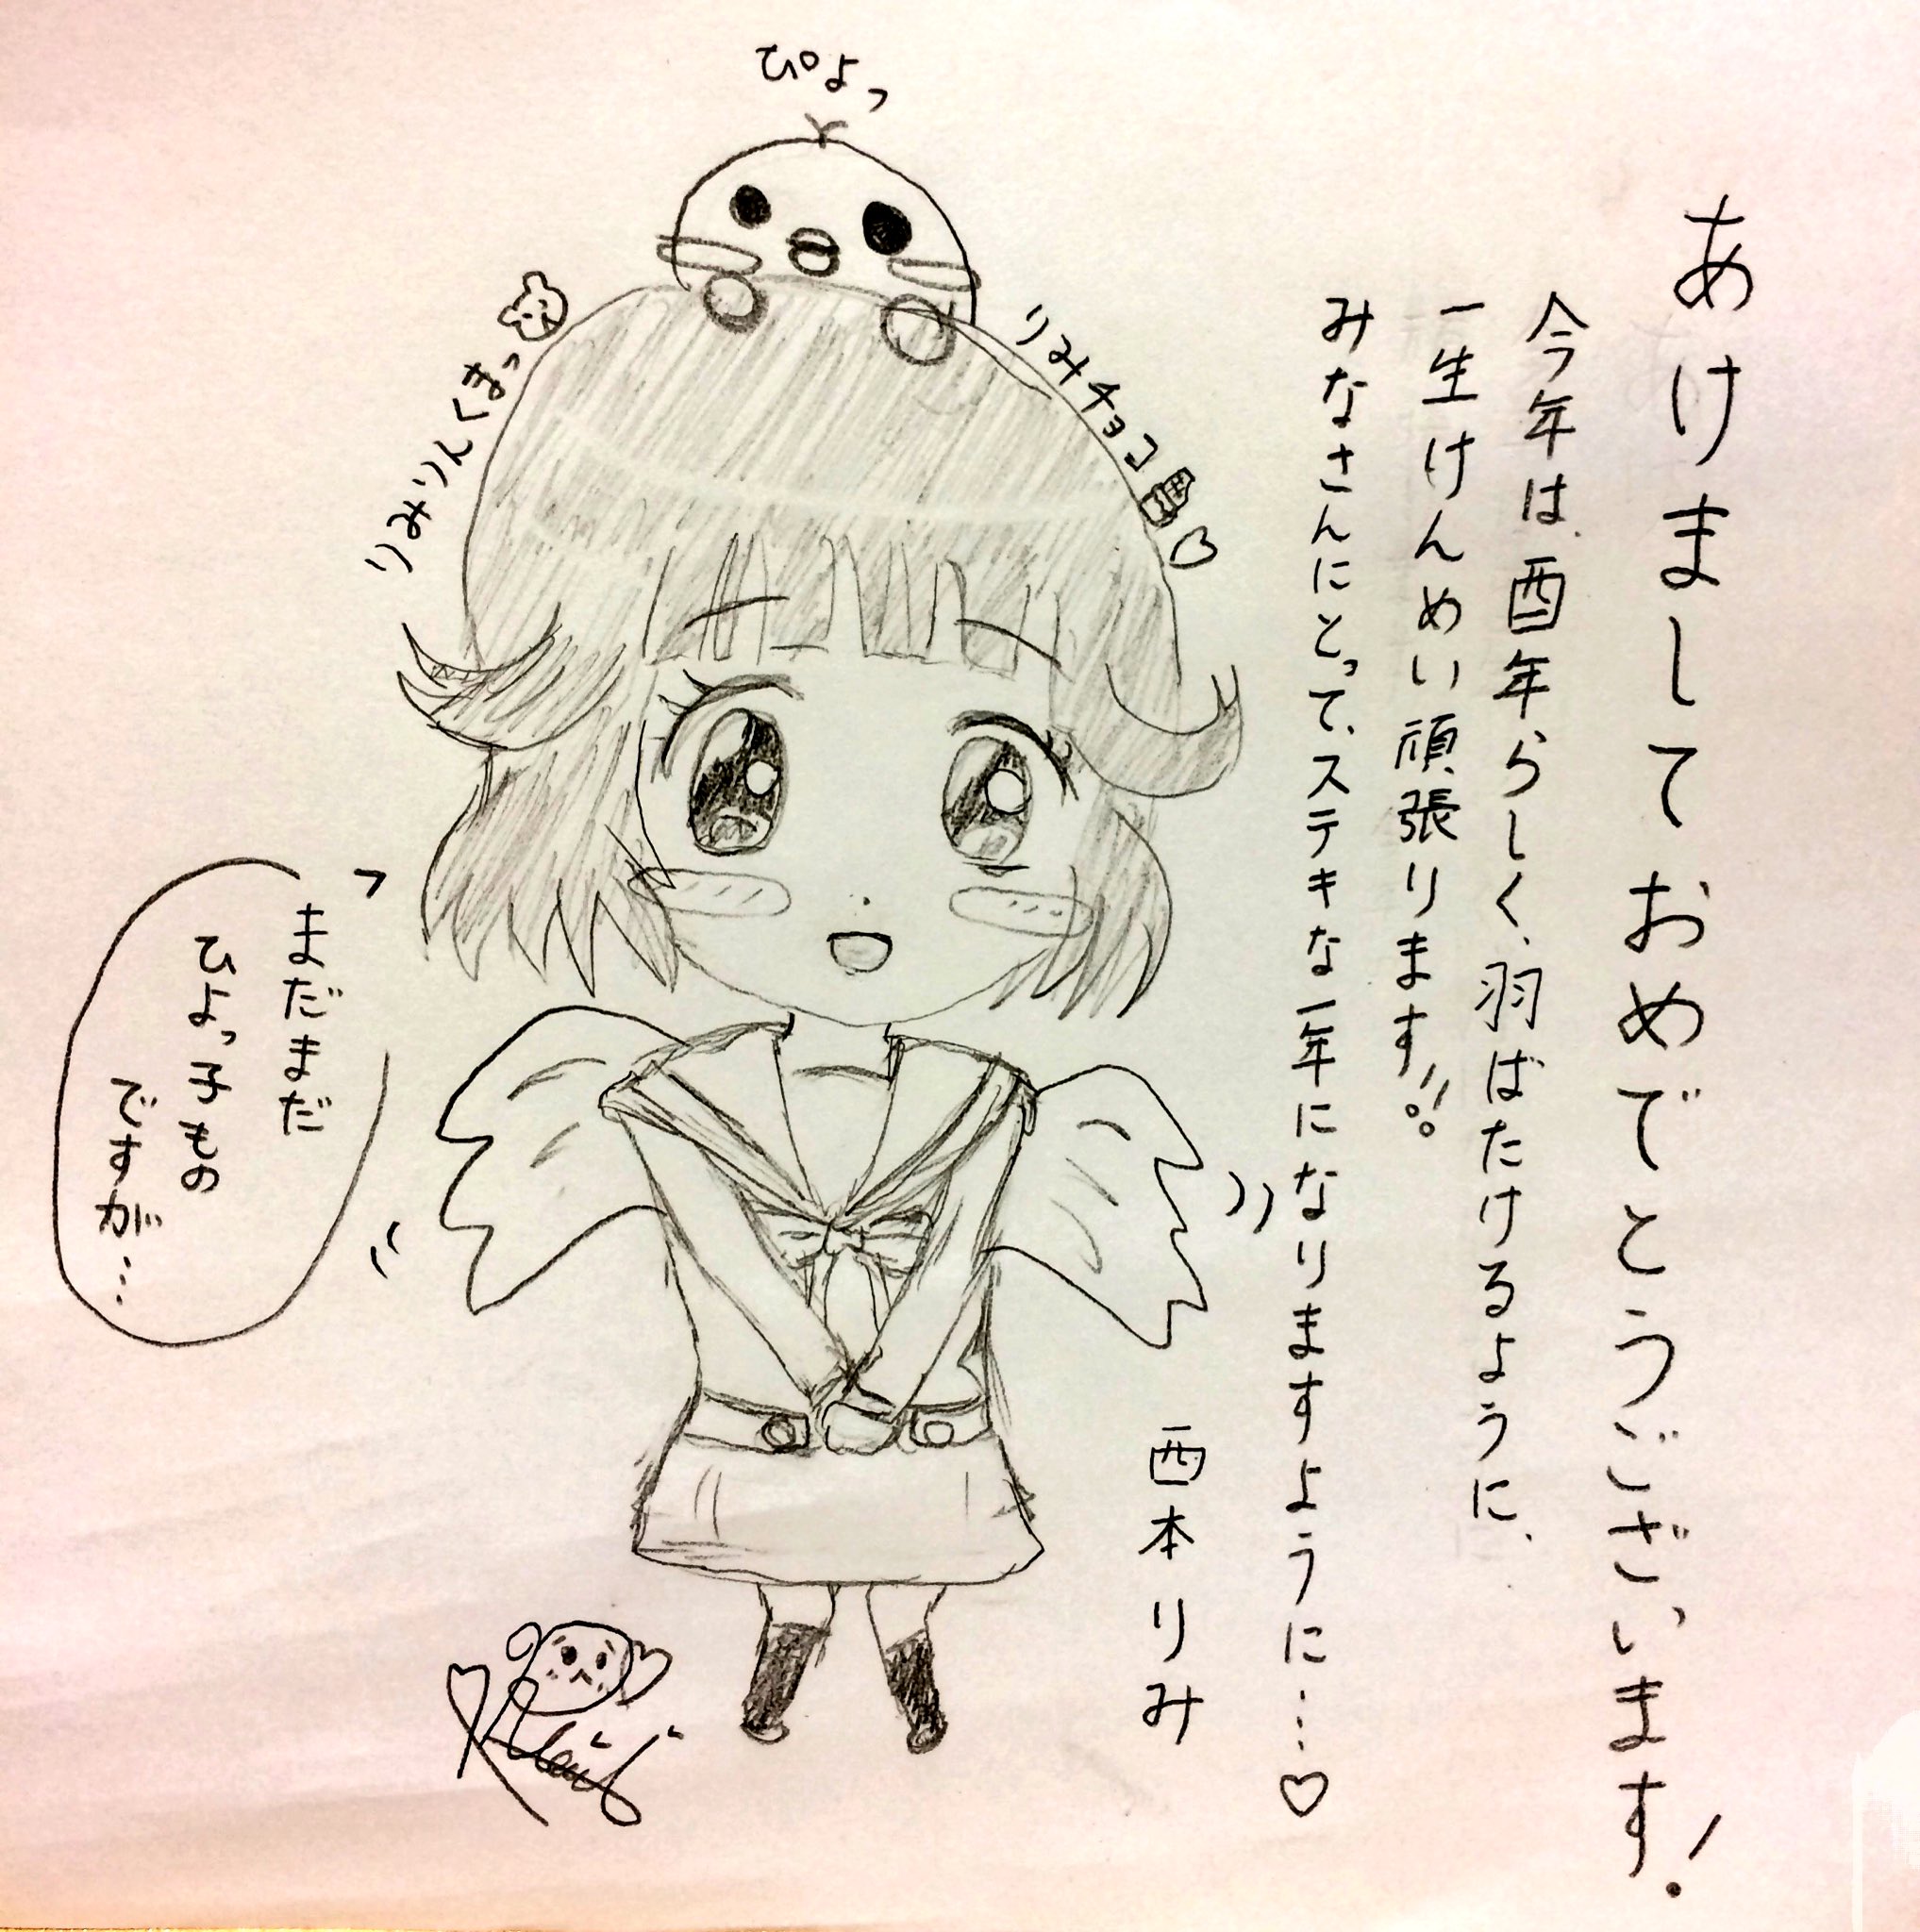 あけましておめでとうございます!
今年は、酉年らしく、羽ばたけるように、
一生けんめい頑張ります!!。
みなさんにとって、ステキな一年になりますように…♡
西本りみ
ぴよっ
りみチョコ♡
りみりんくまっ
まだまだ
ひよっ子もの
ですが…